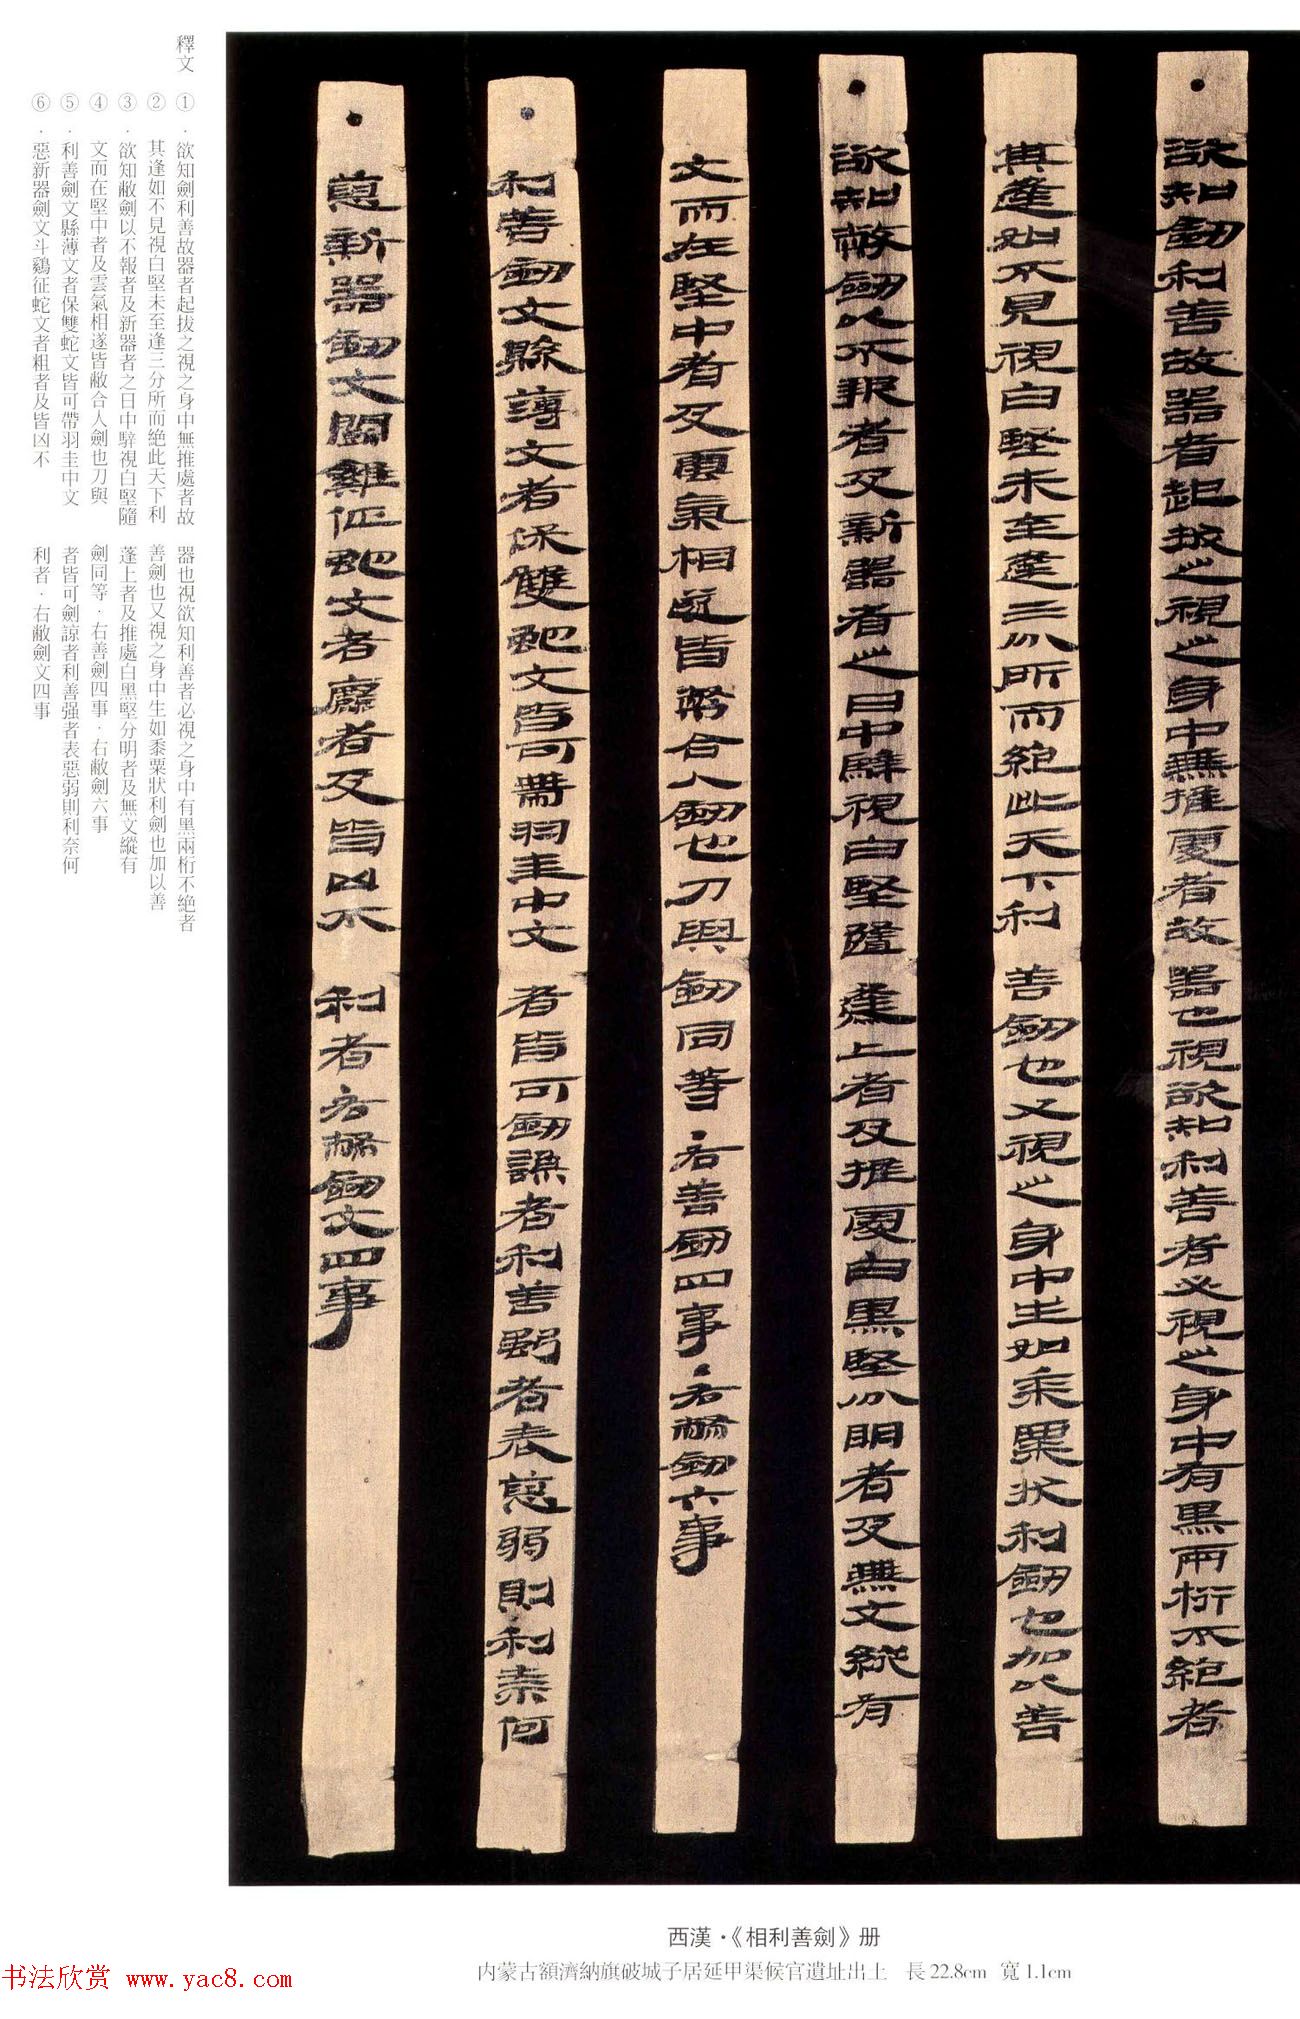 欲知劍利善故器者起拔之視之身中無推處者故器也視欲知利善者必視之身中有黑兩桁不絶者
其逢如不見視白堅未至逢三分所而絶此天下利善劍也又視之身中生如黍粟狀利劍也加以善
欲知敝劍以不報者及新器者之日中騂視白堅隨逢上者及推處白黑堅分明者及無文縱有
文而在堅中者及雲氣相遂皆敝合人劍也刀與劍同等·右善劍四事·右敝劍六事
利善劍文縣薄文者保雙蛇文皆可帶羽圭中文者皆可劍謙者利善强者表惡弱則利奈何
惡新器劍文鬭雞佂蛇文者麤者及皆凶不利者右敝劍文四事
釋文
① ·欲知劍利善故器者起拔之視之身中無推處者故 器也視欲知利善者必視之身中有黑兩桁不絶者
② 其逢如不見視白堅未至逢三分所而絶此天下利 善劍也又視之身中生如黍粟狀利劍也加以善
③ ·欲知敝劍以不報者及新器者之日中騂視白堅隨 蓬上者及推處白黑堅分明者及無文縱有
④ 文而在堅中者及雲氣相遂皆敝合人劍也刀與 劍同等·右善劍四事·右敝劍六事
⑤ ·利善劍文縣薄文者保雙蛇文皆可帶羽圭中文 者皆可劍諒者利善强者表惡弱則利奈何
⑥ ·惡新器劍文斗鷄征蛇文者粗者及皆凶不 利者·右敝劍文四事
西漢·《相利善劍》册
内蒙古額濟納旗破城子居延甲渠候官遺址出土 長22.8cm 寬1.1cm
书法欣赏 www.yac8.com